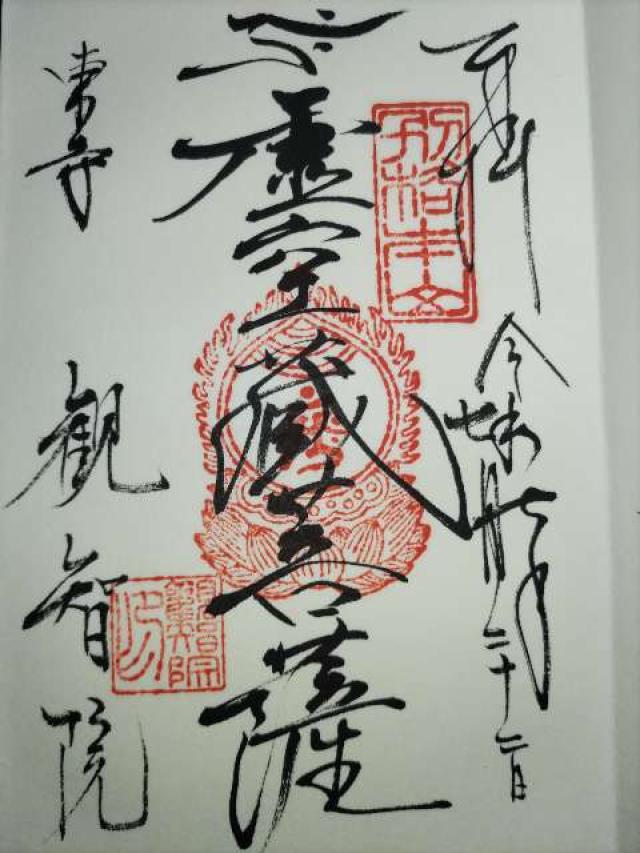 奉拝
別格本山
令和七年七月二十二日
虚空蔵菩薩
東寺
観智院
觀智院印